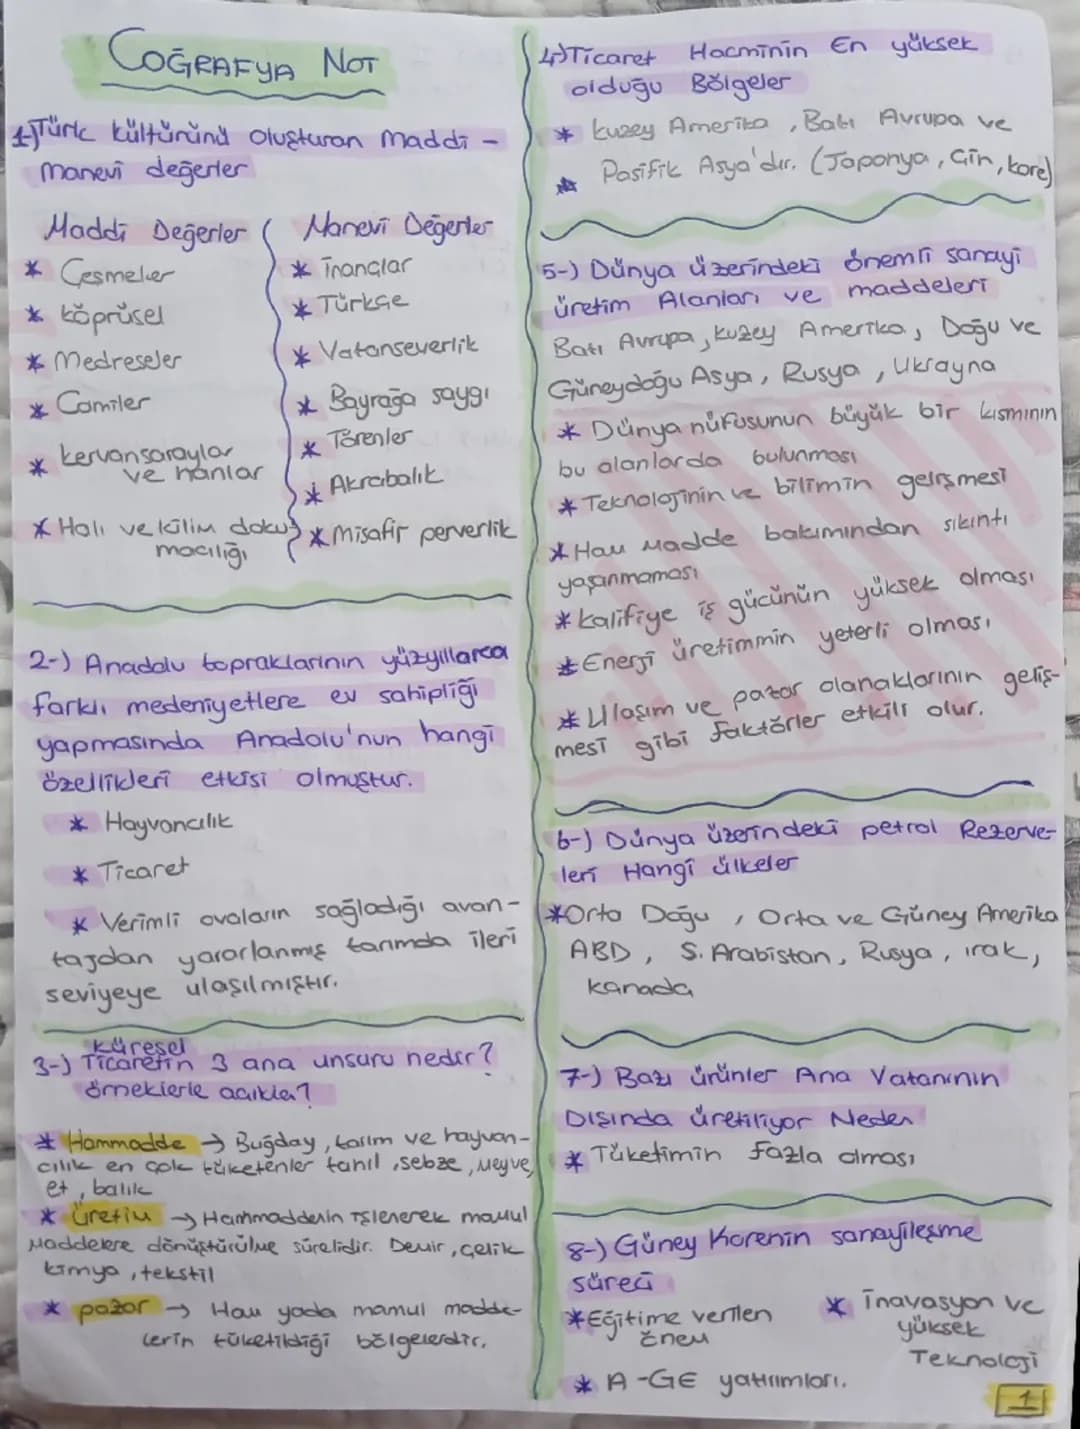 COĞRAFYA NOT
1-)Türk kültürünü oluşturan maddi -
manevi değerler
Maddi Değerler
* Çeşmeler
* köprüsel
* Medreseler
* Camiler
* kervansaraylar
ve hanlar
* Halı ve kilim doku
macılığı
Manevi Değerler
* inançlar
* Türkçe
* Vatanseverlik
* Bayrağa saygı
* Törenler
* Akrabalık
* Misafir perverlik
2-) Anadolu topraklarının yüzyıllarca
farklı medeniyetlere ev sahipliği
yapmasında Anadolu'nun hangi
özellikleri etkisi olmuştur.
* Hayvancılık
* Ticaret
* Verimli ovaların sağladığı avan-
tajdan yararlanmış tarımda ileri
seviyeye ulaşılmıştır.
küresel
3-) Ticaretin 3 ana unsuru nedir?
örneklerle açıkla?
* Hammadde → Buğday, tarım ve hayvan-
cılık en çok tüketenler tahıl, sebze, meyve,
et, balık
* üretim → Hammaddenin işlenerek mamul
maddelere dönüştürülme sürelidir. Demir, çelik
kimya, tekstil
* pazar → Ham yada mamul madde-
lerin tüketildiği bölgelerdir.
4-)Ticaret Hacminin En yüksek
olduğu Bölgeler
* kuzey Amerika, Batı Avrupa ve
* Pasifik Asya'dır. (Japonya, Çin, kore)
5-) Dünya üzerindeki önemli sanayi
üretim Alanları ve maddeleri
Batı Avrupa, kuzey Amerika, Doğu ve
Güneydoğu Asya, Rusya, Ukrayna
* Dünya nüfusunun büyük bir kısmının
bu alanlarda bulunması
* Teknolojinin ve bilimin gelişmesi
* Ham madde bakımından sıkıntı
yaşanmaması
* kalifiye iş gücünün yüksek olması
* Enerji üretiminin yeterli olması
* Ulaşım ve pazar olanaklarının geliş-
mesi gibi faktörler etkili olur.
6-) Dünya üzerindeki petrol Rezerve-
leri Hangi ülkeler
*Orta Doğu, Orta ve Güney Amerika
ABD, S. Arabistan, Rusya, ırak,
kanada
7-) Bazı ürünler Ana Vatanının
Dışında üretiliyor Neden
* Tüketimin fazla olması
8-) Güney Korenin sanayileşme
süreci
*Eğitime verilen
önem
* A-GE yatırımları.
* inavasyon ve
yüksek
Teknoloji
1